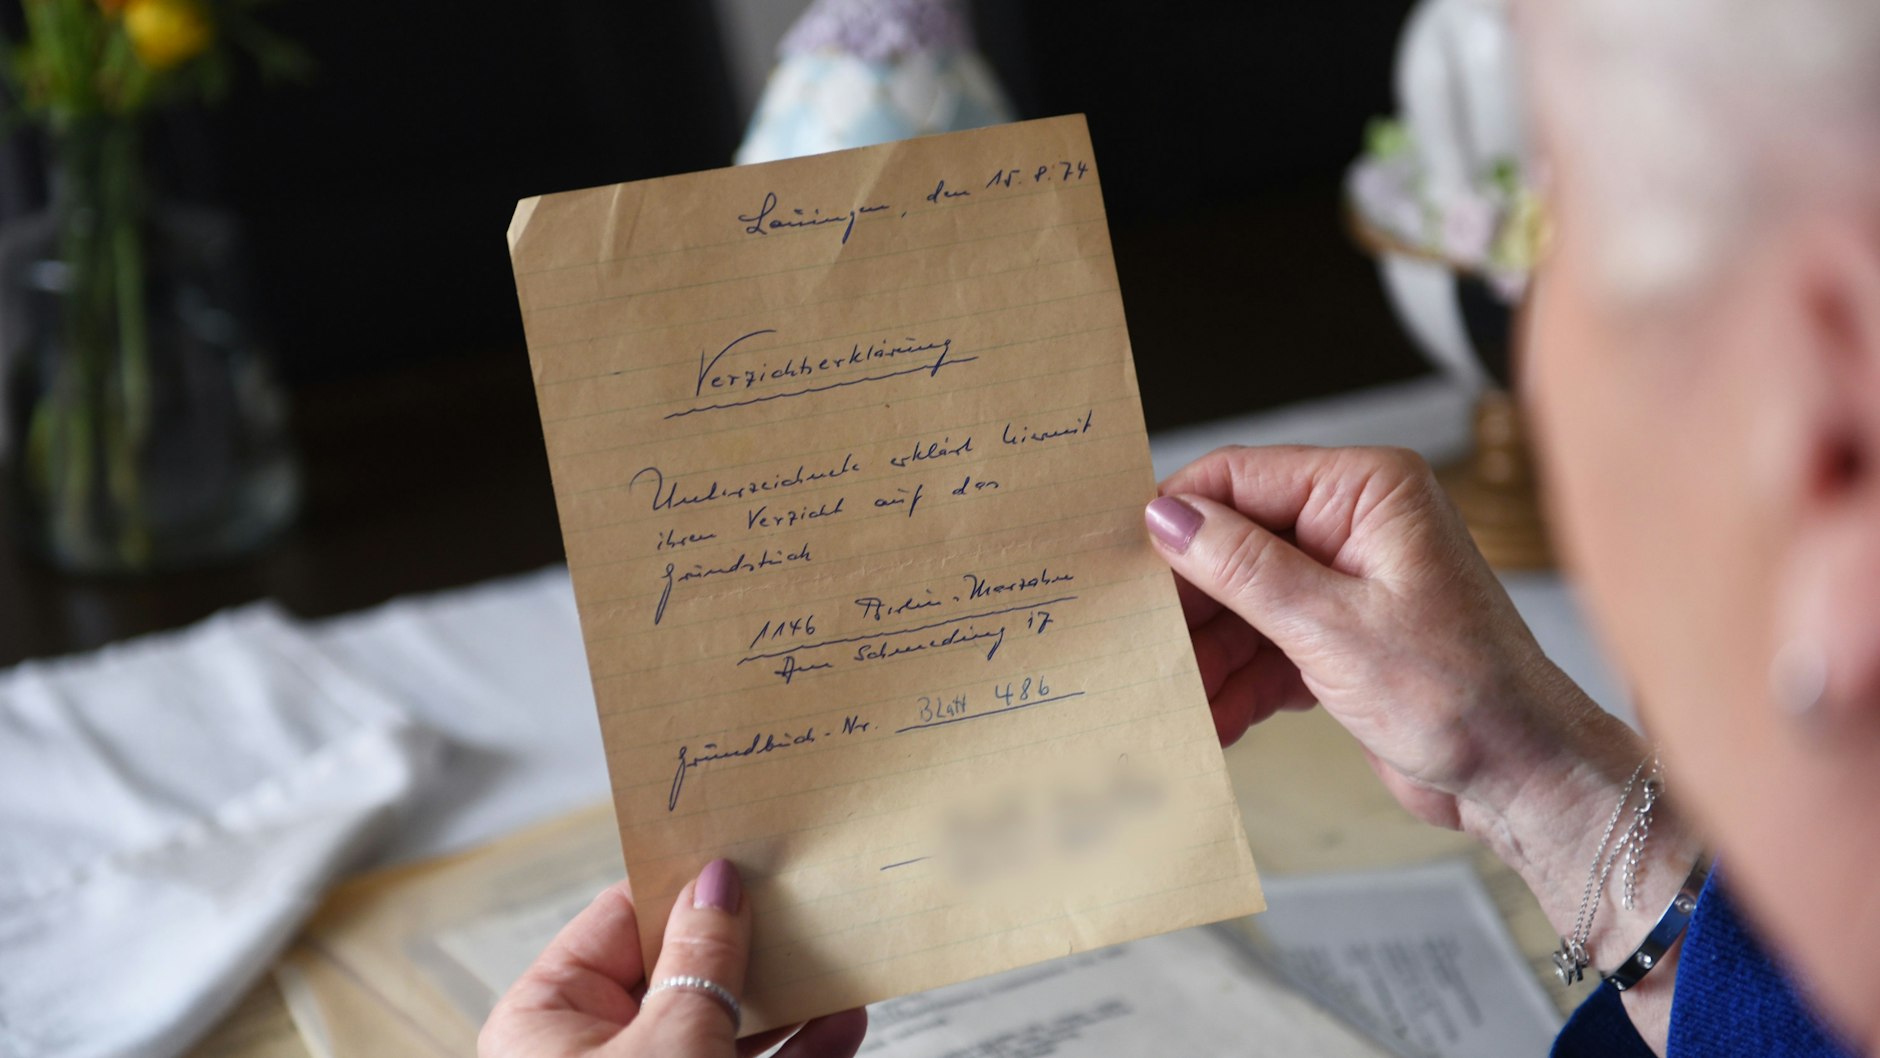 Lauingen, den 15.8.74
Verzichtserklärung
Unterzeichnete erklärt hiermit
ihren Verzicht auf das
Grundstück
1146 Berlin-Marzahn
Am Schmeding 17
Grundbuch-Nr. Blatt 486